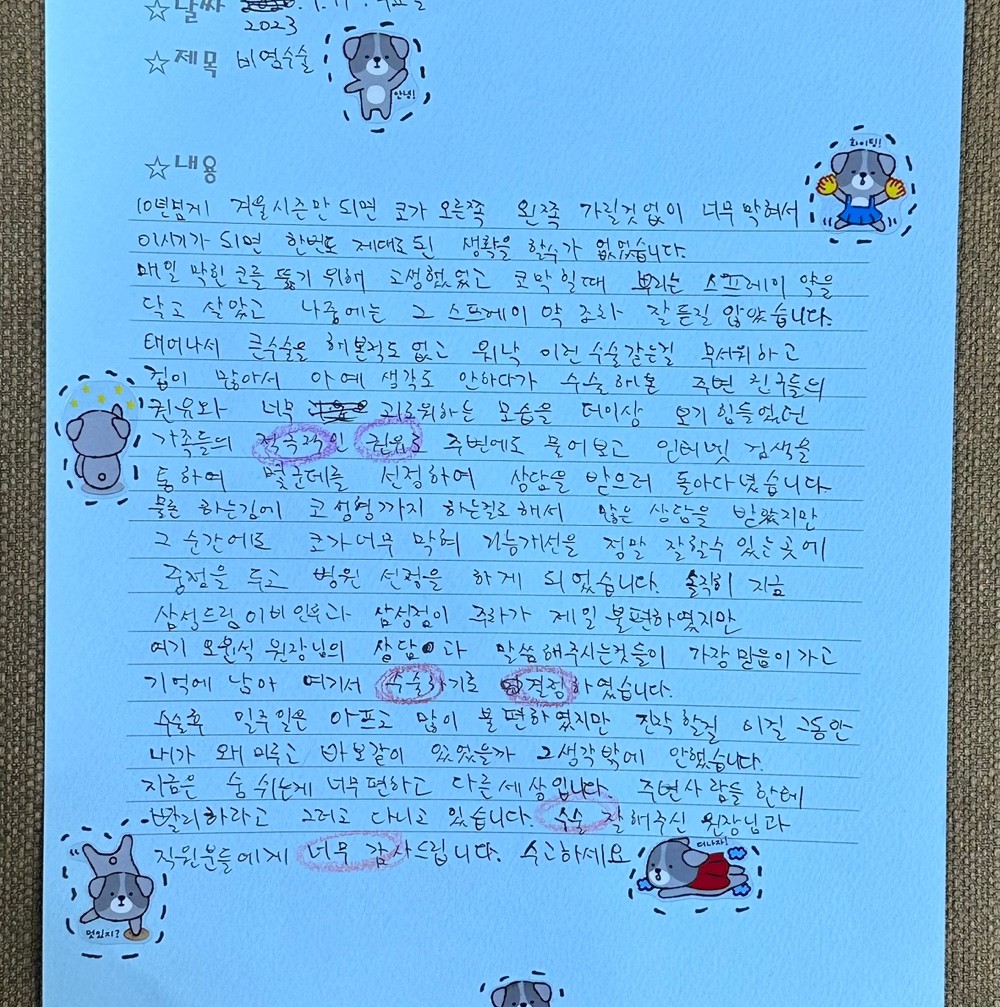 ☆날짜
2023
☆제목 비염수술
안녕!
화이팅!
☆내용
10년넘게 겨울시즌만 되면 코가 오른쪽 왼쪽 가릴것 없이 너무 막혀서
이시기가 되면 한번도 제대로 된 생활을 할수가 없었습니다.
매일 막힌 코를 뚫기 위해 고생했었고 코막힐때 뿌리는 스프레이 약을
달고 살았고 나중에는 그 스프레이 약 조차 잘 듣질 않았습니다.
태어나서 큰수술을 해본적도 없고 워낙 이런 수술같은걸 무서워하고
겁이 많아서 아예 생각도 안하다가 수술해본 주변 친구들의
권유와 너무 괴로워하는 모습을 더이상 보기 힘들었던
가족들의 적극적인 권유로 주변에도 물어보고 인터넷 검색을
통하여 몇군데를 선정하여 상담을 받으러 돌아다녔습니다.
물론 하는김에 코성형까지 하는걸로해서 많은 상담을 받았지만
그 순간에도 코가너무 막혀 기능개선을 정말 잘할수 있는곳에
중점을 두고 병원 선정을 하게 되었습니다. 솔직히 지금
삼성드림이비인후과 삼성점이 주차가 제일 불편하였지만
여기 오윤석 원장님의 상담과 말씀해주시는것들이 가장믿음이가고
기억에 남아 여기서 수술하기로 결정하였습니다.
수술후 일주일은 아프고 많이 불편하였지만 진작할걸 이걸 그동안
내가 왜미루고 바보같이 있었을까 그생각밖에 안했습니다.
지금은 숨 쉬는게 너무편하고 다른세상입니다. 주변사람들 한테
빨리하라고 그러고 다니고 있습니다. 수술 잘해주신 원장님과
직원분들에게 너무 감사드립니다. 수고하세요
떠나자!
멋있지?